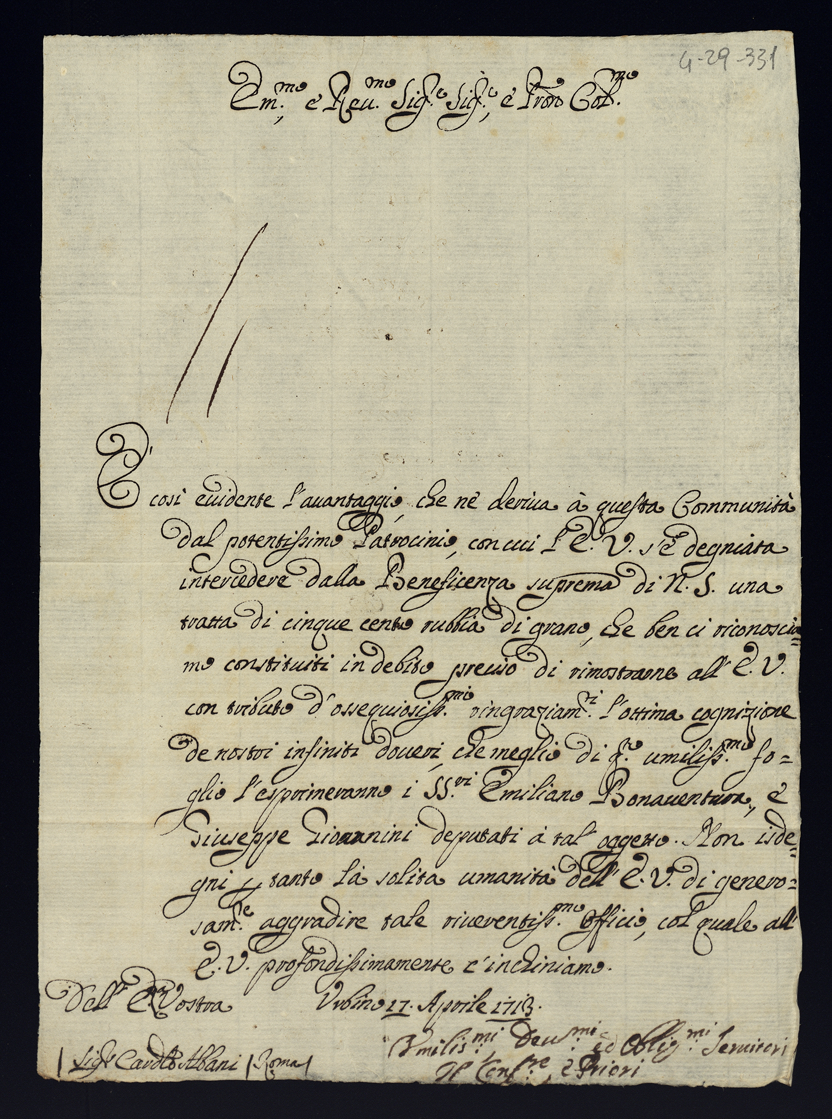 4-29-331
Em:mo e Reu.mo Sig.e Sig.e, e Pron Col.mo
È così euidente l'auantaggio, che nè deriua à questa Communità
dal potentissimo Patrocinio, con cui l'E. V. s'è degniata
intercedere dalla Beneficenza suprema di N. S. una
tratta di cinque cento rubbia di grano, che ben ci riconoscia=
mo constituiti in debito preciso di rimostrarne all'E. V.
con tributo d'ossequiosiss.mi ringraziam.ti l'ottima cognizione
de nostri infiniti doueri, che meglio di q.o umiliss.mo fo=
glio l'esprimeranno i SS.ri Emiliano Bonauentura, è
Giuseppe Giouannini deputati à tal' oggetto. Non isde=
gni p tanto là solita umanità dell' E. V. di genero=
sam.e aggradire tale riuerentiss.mo Officio, col quale all'
E. V. profondissimamente c'inchiniamo.
Dell' E. Vostra Vrbino 17. Aprile 1713.
Vmilis.mi Deu.mi ed Oblig.mi Seruitori
| Sig.r Card.le Albani | Roma | Il Conf.re, è Priori